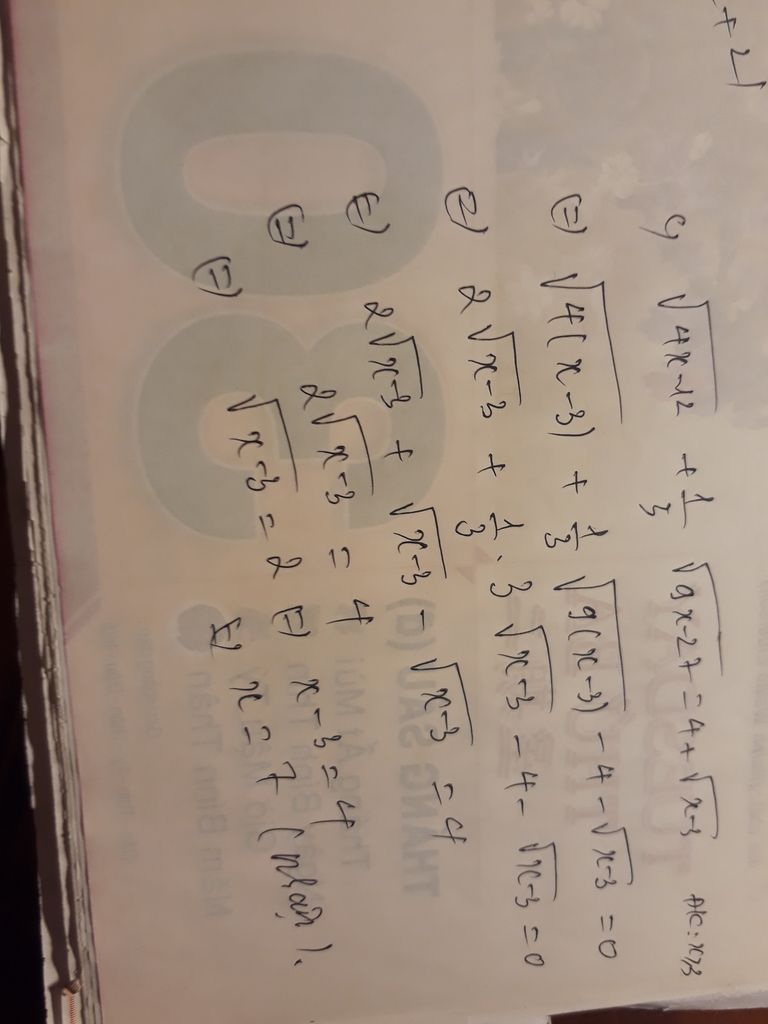 + 2
c, √(4x-12) + 1/3 √(9x-27) = 4 + √(x-3) ĐK: x≥3
(=) √(4(x-3)) + 1/3 √(9(x-3)) - 4 - √(x-3) = 0
(=) 2√(x-3) + 1/3 . 3√(x-3) - 4 - √(x-3) = 0
(=) 2√(x-3) + √(x-3) - √(x-3) = 4
(=) 2√(x-3) = 4
(=) √(x-3) = 2 (=) x-3 = 4
(=) x = 7 (nhận).